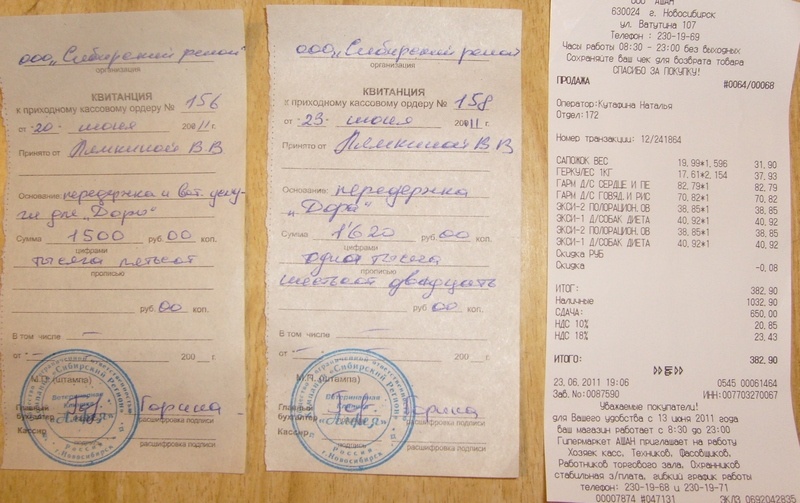 ооо „Сибирский регион"
организация
КВИТАНЦИЯ
к приходному кассовому ордеру № 156
от 20 · июня 20011 г.
Принято от Лямкиной В.В
Основание: передержка и вет. услу-
ги для „Дора"
Сумма 1500 руб. 00 коп.
цифрами
тысяча пятьсот
прописью
руб. 00 коп.
В том числе —
от - — 200 г.
М.П. (штампа)
Главный бухгалтер Горина
Кассир расшифровка подписи
расшифровка подписи
«Сибирский Регион»
Ветеринарная
«Алвея»
Россия
г.Новосибирск
ооо „Сибирский регион
организация
КВИТАНЦИЯ
к приходному кассовому ордеру № 158
от 23 · июня 20011 г.
Принято от Лямкиной В.В
Основание: передержка
„Дора"
Сумма 1'620 руб. 00 коп.
цифрами
одна тысяча
прописью
шестьсот двадцать
руб. 00 коп.
В том числе —
от - — 200 г.
М.П. (штампа)
Главный бухгалтер Горина
Кассир расшифровка подписи
расшифровка подписи
«Сибирский Регион»
Ветеринарная
Россия
г.Новосибирск
ООО АШАН
630024 г. Новосибирск
ул. Ватутина 107
Телефон : 230-19-69
Часы работы 08:30 - 23:00 без выходных
Сохраняйте ваш чек для возврата товара
СПАСИБО ЗА ПОКУПКУ!
ПРОДАЖА #0064/00068
Оператор:Кутафина Наталья
Отдел:172
Номер транзакции: 12/241864
САПОЖОК ВЕС 19,99*1,596 31,90
ГЕРКУЛЕС 1КГ 17,61*2,154 37,93
ГАРМ Д/С СЕРДЦЕ И ПЕ 82,79*1 82,79
ГАРМ Д/С ГОВЯД. И РИС 70,82*1 70,82
ЭКСИ-2 ПОЛОРАЦИОН.ОВ 38,85*1 38,85
ЭКСИ-1 Д/СОБАК ДИЕТА 40,92*1 40,92
ЭКСИ-2 ПОЛОРАЦИОН.ОВ 38,85*1 38,85
ЭКСИ-1 Д/СОБАК ДИЕТА 40,92*1 40,92
Скидка РУБ
Скидка -0,08
ИТОГ: 382,90
Наличные 1032,90
СДАЧА: 650,00
НДС 10% 20,85
НДС 18% 23,43
ИТОГО: 382,90
23.06.2011 19:06 0545 00061464
Зав.No:0087590 ИНН:007703270067
Уважаемые покупатели!
для Вашего удобства с 13 июня 2011 года
ваш магазин работает с 8:30 до 23:00
Гипермаркет АШАН приглашает на работу
Хозяек касс. Техников, Фасовщиков,
Работников торгового зала, Охранников
стабильная з/плата, гибкий график работы
телефон: 230-19-68 и 230-19-71
00007874 #047131 ЭКЛЗ 0692042835